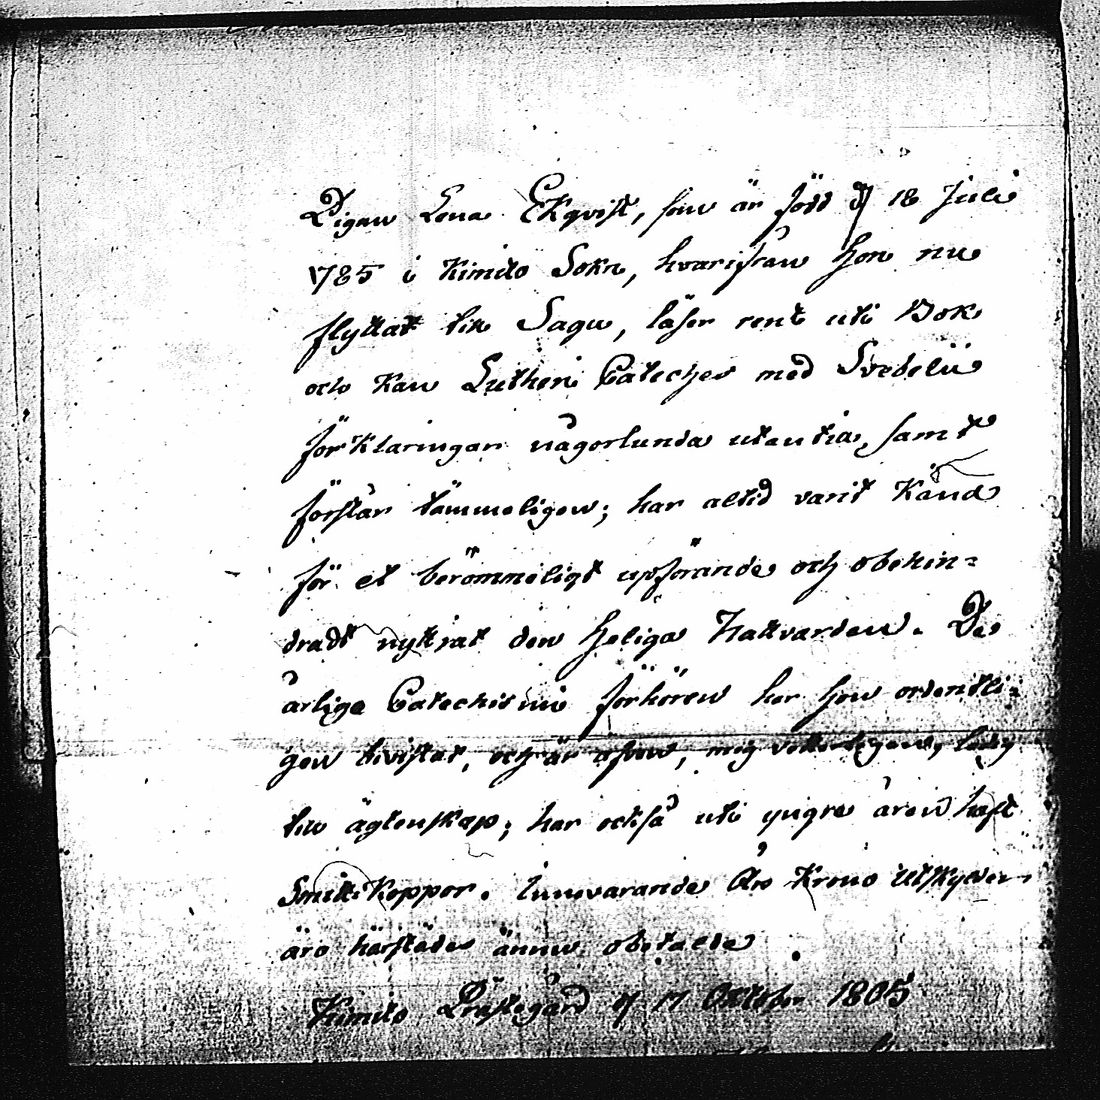 Pigan Lena Ekqvist, som är född d 18 Julii
1785 i Kimito Sokn, hvarifrån hon nu
flyttat till Sagu, läser rent uti Bok
och kan Lutheri Cateches med Svebelii
förklaringar någorlunda utantia, samt
förstår tämmeligen; har altid varit känd
för et berömmeligt upförande och obehin=
dradt nyttjat den heliga Nattvarden. De
årlige Catechismi förhören har hon ordentli=
gen bivistat, och är afven, mig vetterligen, ledig
till ägtenskap; har också uti yngre åren haft
Smitt-Koppor. Innevarande Års Krono Utskylder
äro härstädes ännu obetalde
Kimito Prästegård d 17 October 1805